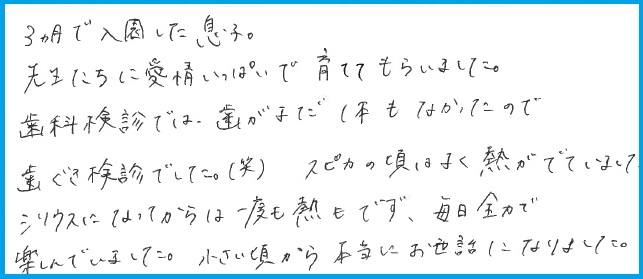 3ヵ月で入園した息子。
先生たちに愛情いっぱいで育ててもらいました。
歯科検診では、歯がまだ1本もなかったので
歯ぐき検診でした。(笑) スピカの頃はよく熱がでていまして
シリウスになってからは一度も熱もでず、毎日全力で
楽しんでいました。小さい頃から本当にお世話になりました。